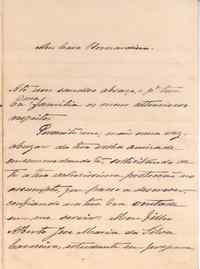 Meu Caro Bernardino.
Até um saudoso abraço, e pª tua
Exma familia os meus attenciosos
respeitos.
Permitte-me, mais uma vez,
abusar da tua velha amizade
incommodando-te, solicitando de
ti a tua valiosissima protecção no
assumpto que passo a descrever,
confiando na tua boa vontade
em me servir. Meu filho
Alberto José Maria da Silva
Carneiro, estudante em